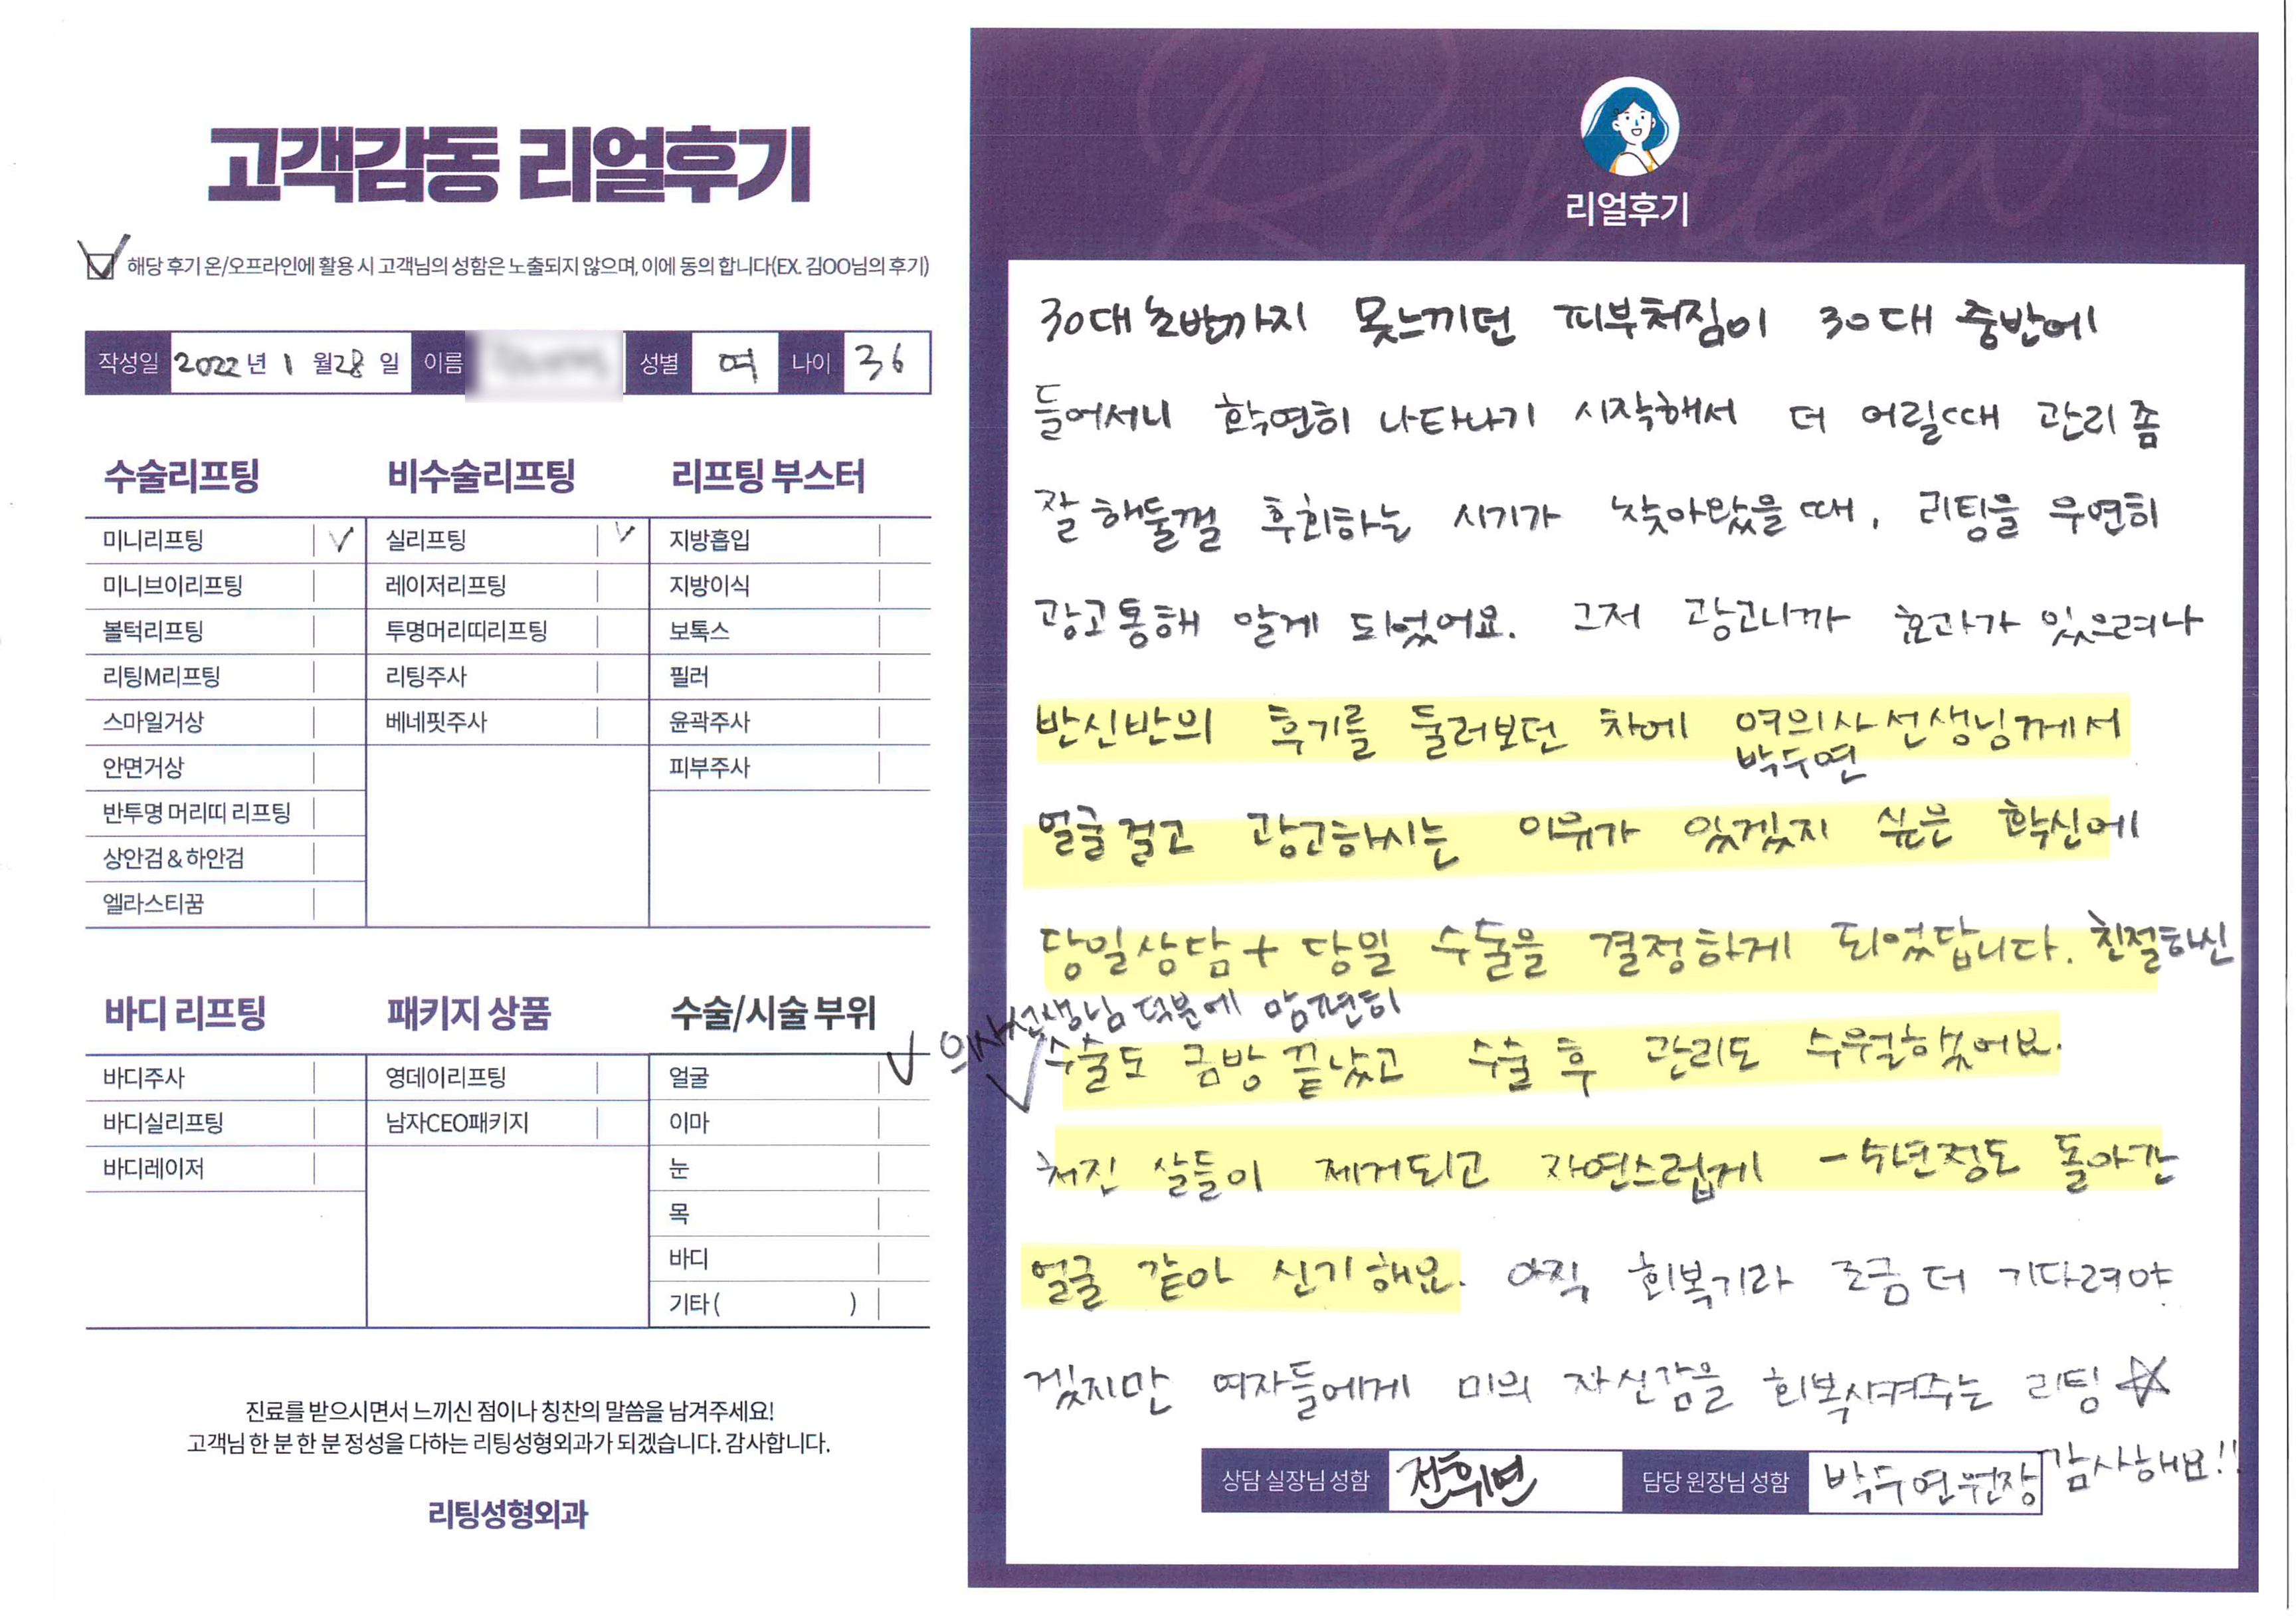 고객감동 리얼후기
해당 후기 온/오프라인에 활용 시 고객님의 성함은 노출되지 않으며, 이에 동의 합니다(EX. 김OO님의 후기)
작성일 2022년 1월 28일 이름 성별 여 나이 36
수술리프팅
미니리프팅
미니브이리프팅
볼턱리프팅
리팅M리프팅
스마일거상
안면거상
반투명 머리띠 리프팅
상안검 & 하안검
엘라스티꿈
비수술리프팅
실리프팅
레이저리프팅
투명머리띠리프팅
리팅주사
베네핏주사
리프팅 부스터
지방흡입
지방이식
보톡스
필러
윤곽주사
피부주사
바디 리프팅
바디주사
바디실리프팅
바디레이저
패키지 상품
영데이리프팅
남자CEO패키지
수술/시술 부위
얼굴
이마
눈
목
바디
기타( )
진료를 받으시면서 느끼신 점이나 칭찬의 말씀을 남겨주세요!
고객님 한 분 한 분 정성을 다하는 리팅성형외과가 되겠습니다. 감사합니다.
리팅성형외과
Review
리얼후기
30대 초반까지 못느끼던 피부처짐이 30대 중반에
들어서니 확연히 나타나기 시작해서 더 어릴때 관리좀
잘 해둘껄 후회하는 시기가 찾아왔을때, 리팅을 우연히
광고통해 알게 되었어요. 그저 광고니까 효과가 있으려나
반신반의 후기를 둘러보던 차에 여의사선생님께서
박두연
얼굴걸고 광고하시는 이유가 있겠지 싶은 확신에
당일상담+당일 수술을 결정하게 되었답니다. 친절하신
의사선생님 덕분에 맘편히
수술도 금방 끝났고 수술 후 관리도 수월했어요.
처진 살들이 제거되고 자연스럽게 -5년정도 돌아간
얼굴 같아 신기해요. 아직 회복기라 조금 더 기다려야
겠지만 여자들에게 미의 자신감을 회복시켜주는 리팅☆
감사해요!!
상담 실장님 성함 전휘연 담당 원장님 성함 박두연원장